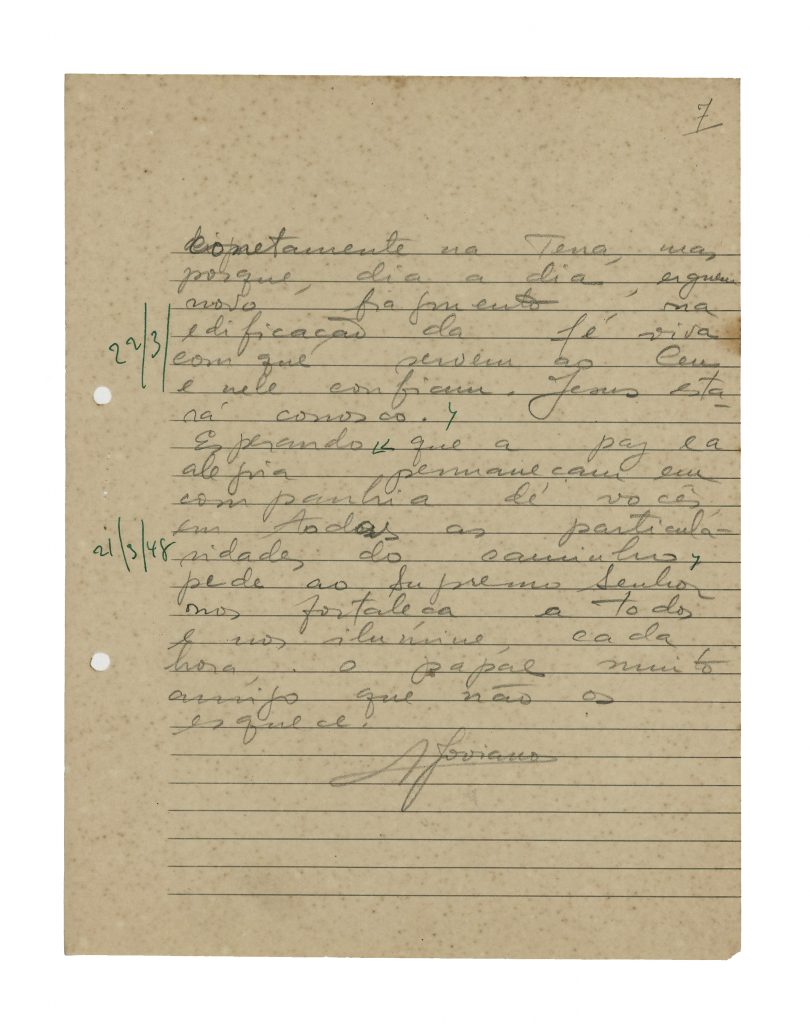 7
concretamente na Terra, mas
porque, dia a dia, erguem
novo fragmento na
edificação da fé viva
22/3/
com que servem ao Ceu
e nele confiam. Jesus esta-
rá conosco.
Esperando que a paz e a
alegria permaneçam em
companhia de vocês
em todas as particula-
21/3/48
ridades do caminho,
pede ao Supremo Senhor
nos fortaleça a todos
e nos ilumine, cada
hora, o papae muito
amigo que não os
esquece.
A Joviano